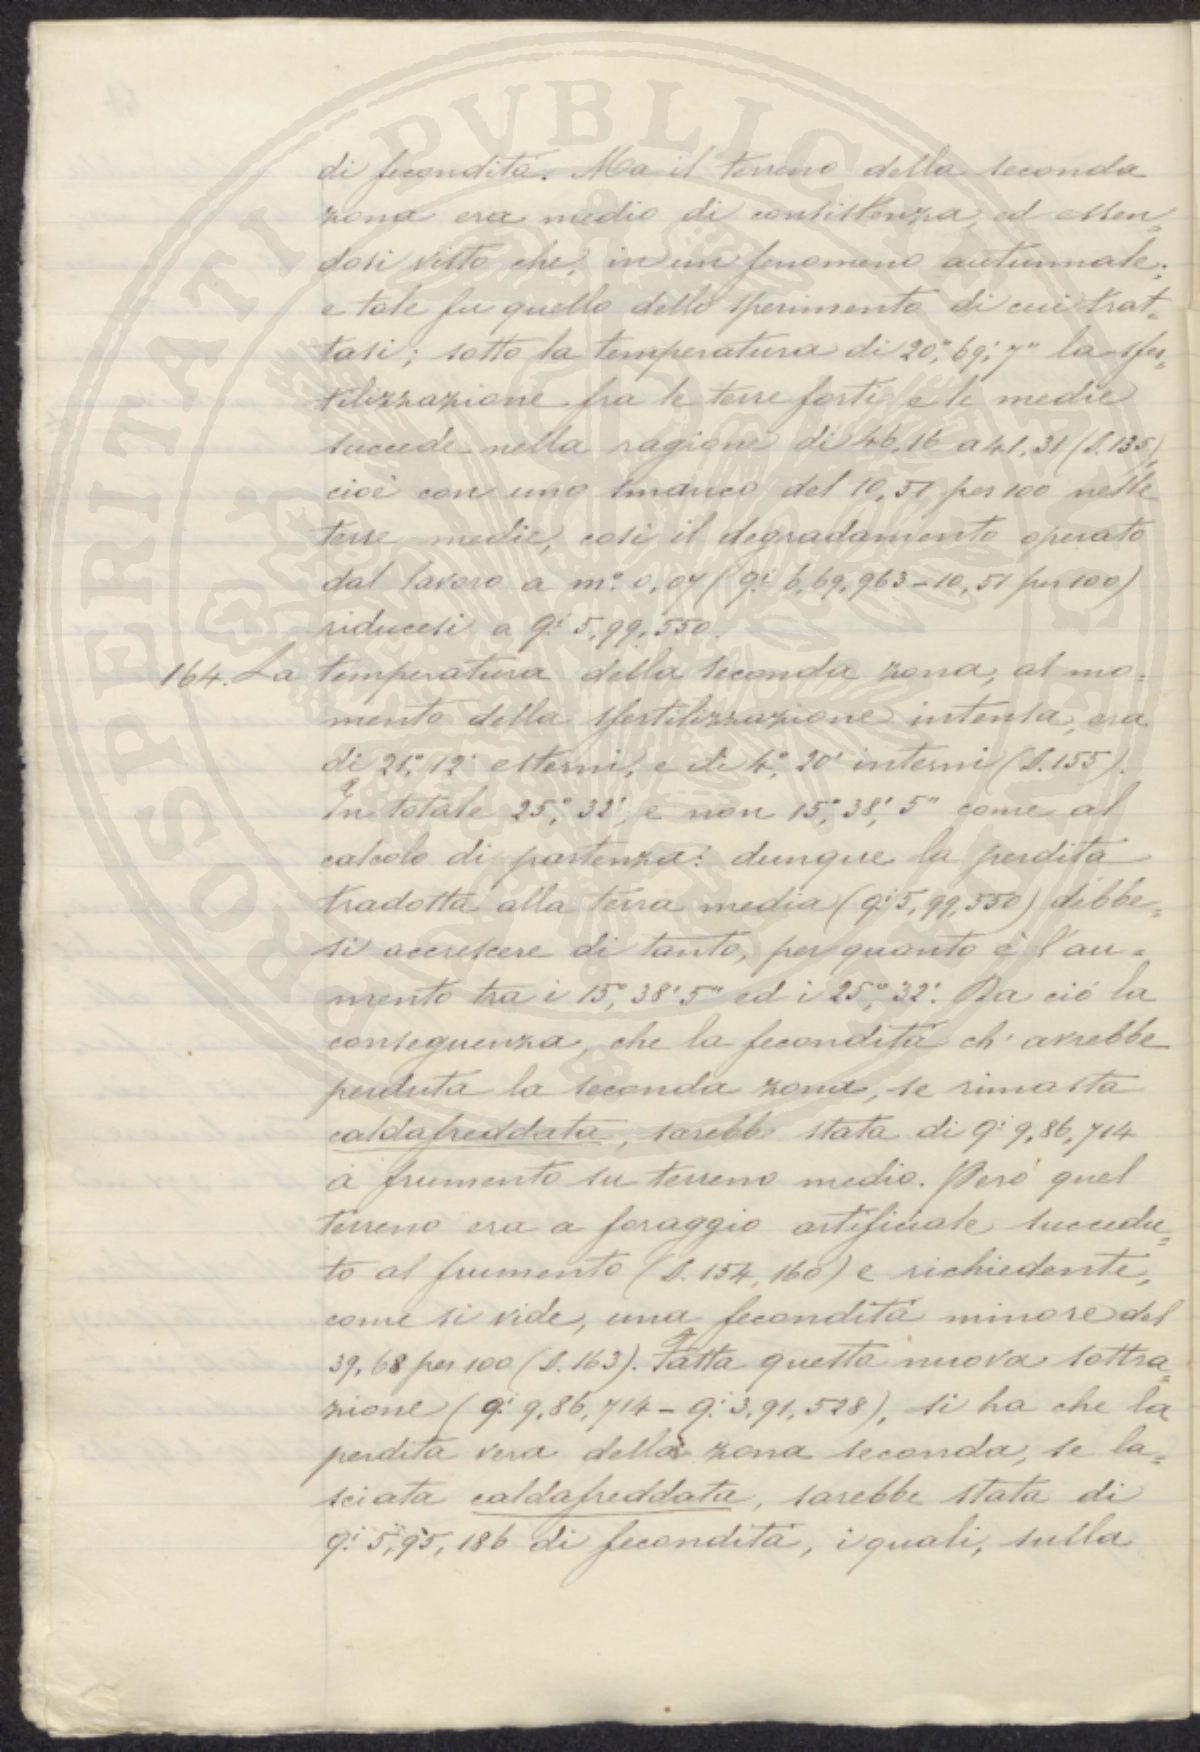 di fecondità. Ma il terreno della seconda
zona era medio di consistenza, ed essen=
dosi visto che, in un fenomeno autunnale;
e tale fu quello dello sperimento di cui trat=
tasi; sotto la temperatura di 20°, 69', 7" la sfer=
tilizzazione fra le terre forti e le medie
succede nella ragione di 46,16 a 41,31 (§.135)
cioè con uno smanco del 10,51 per 100 nelle
terre medie, così il degradamento operato
dal lavoro a m.° 0,04 (q.i 6,69,963 - 10,51 per 100)
riducesi a q.i 5,99,550.
164. La temperatura della seconda zona, al mo=
mento della sfertilizzazione intensa, era
di 21°, 12' esterni, e di 4°, 20' interni (§.155).
In totale 25°, 32', e non 15°, 38', 5" come al
calcolo di partenza: dunque la perdita
tradotta alla terra media (q.i 5,99,550) debbe=
si accrescere di tanto, per quanto è l'au=
mento tra i 15°, 38' 5" ed i 25°, 32'. Da ciò la
conseguenza, che la fecondità ch'avrebbe
perduta la seconda zona, se rimasta
caldafreddata, sarebbe stata di q.i 9,86,714
a frumento su terreno medio. Però quel
terreno era a foraggio artificiale succedu=
to al frumento (§. 154, 160) e richiedente,
come si vide, una fecondità minore del
39,68 per 100 (§. 163). Fatta questa nuova sottra=
zione (q.i 9,86,714 - q.i 3,91,528), si ha che la
perdita vera della zona seconda, se la=
sciata caldafreddata, sarebbe stata di
q.i 5,95,186 di fecondità, i quali, sulla
PUBLICAE
PROSPERITATI